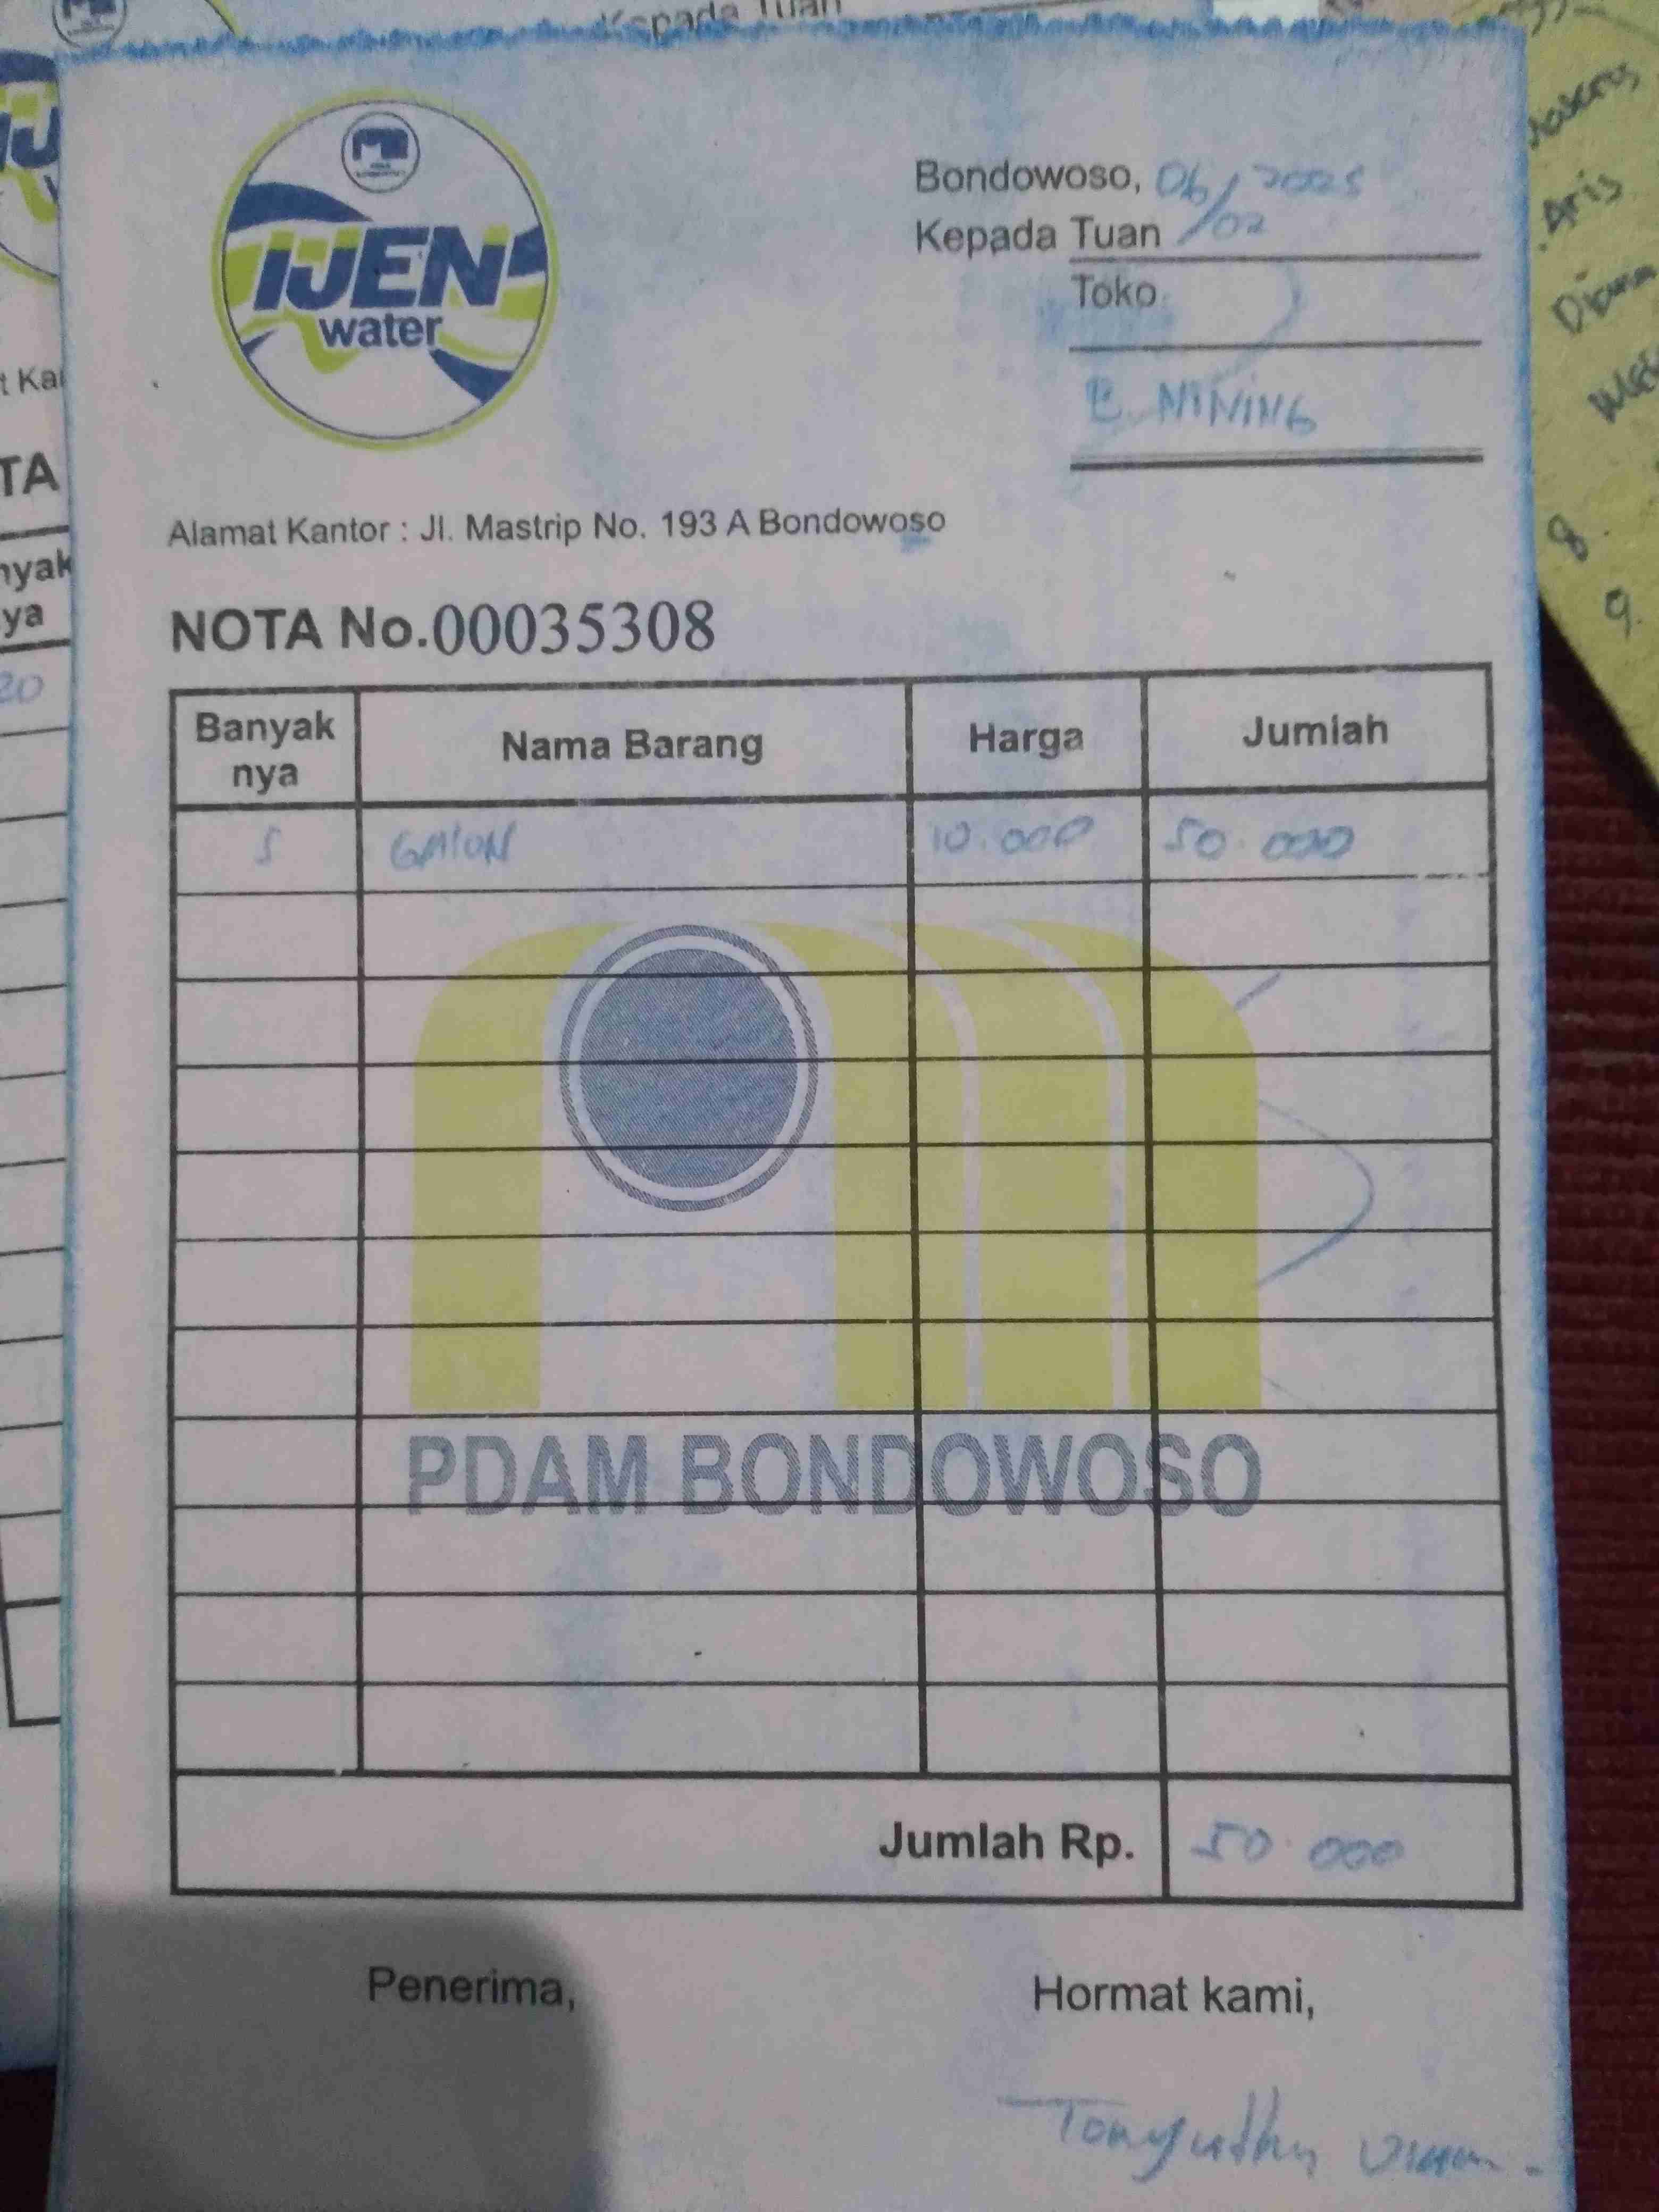 Kepada Tuan
IJEN
water
Bondowoso, 06/02 2025
Kepada Tuan
Toko
B. NINING
Alamat Kantor : Jl. Mastrip No. 193 A Bondowoso
NOTA No.00035308
Banyak nya Nama Barang Harga Jumlah
5 GALON 10.000 50.000
PDAM BONDOWOSO
Jumlah Rp. 50.000
Penerima, Hormat kami,
IJ
t Ka
TA
nyak
ya
20
Aris
8.
9.